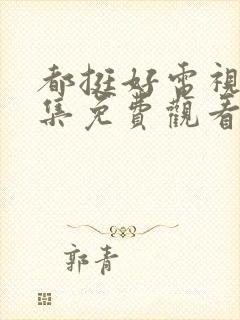 都挺好電視
集免費觀看
郭青